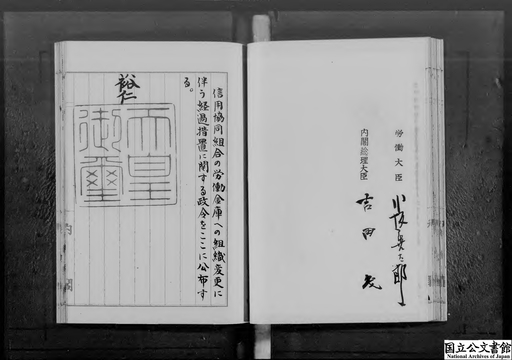 信用協同組合の労働金庫への組織変更に
伴う経過措置に関する政令をここに公布す
る。
裕仁
天皇
御璽
内閣総理大臣
吉田茂
労働大臣
小坂善太郎
国立公文書館
National Archives of Japan